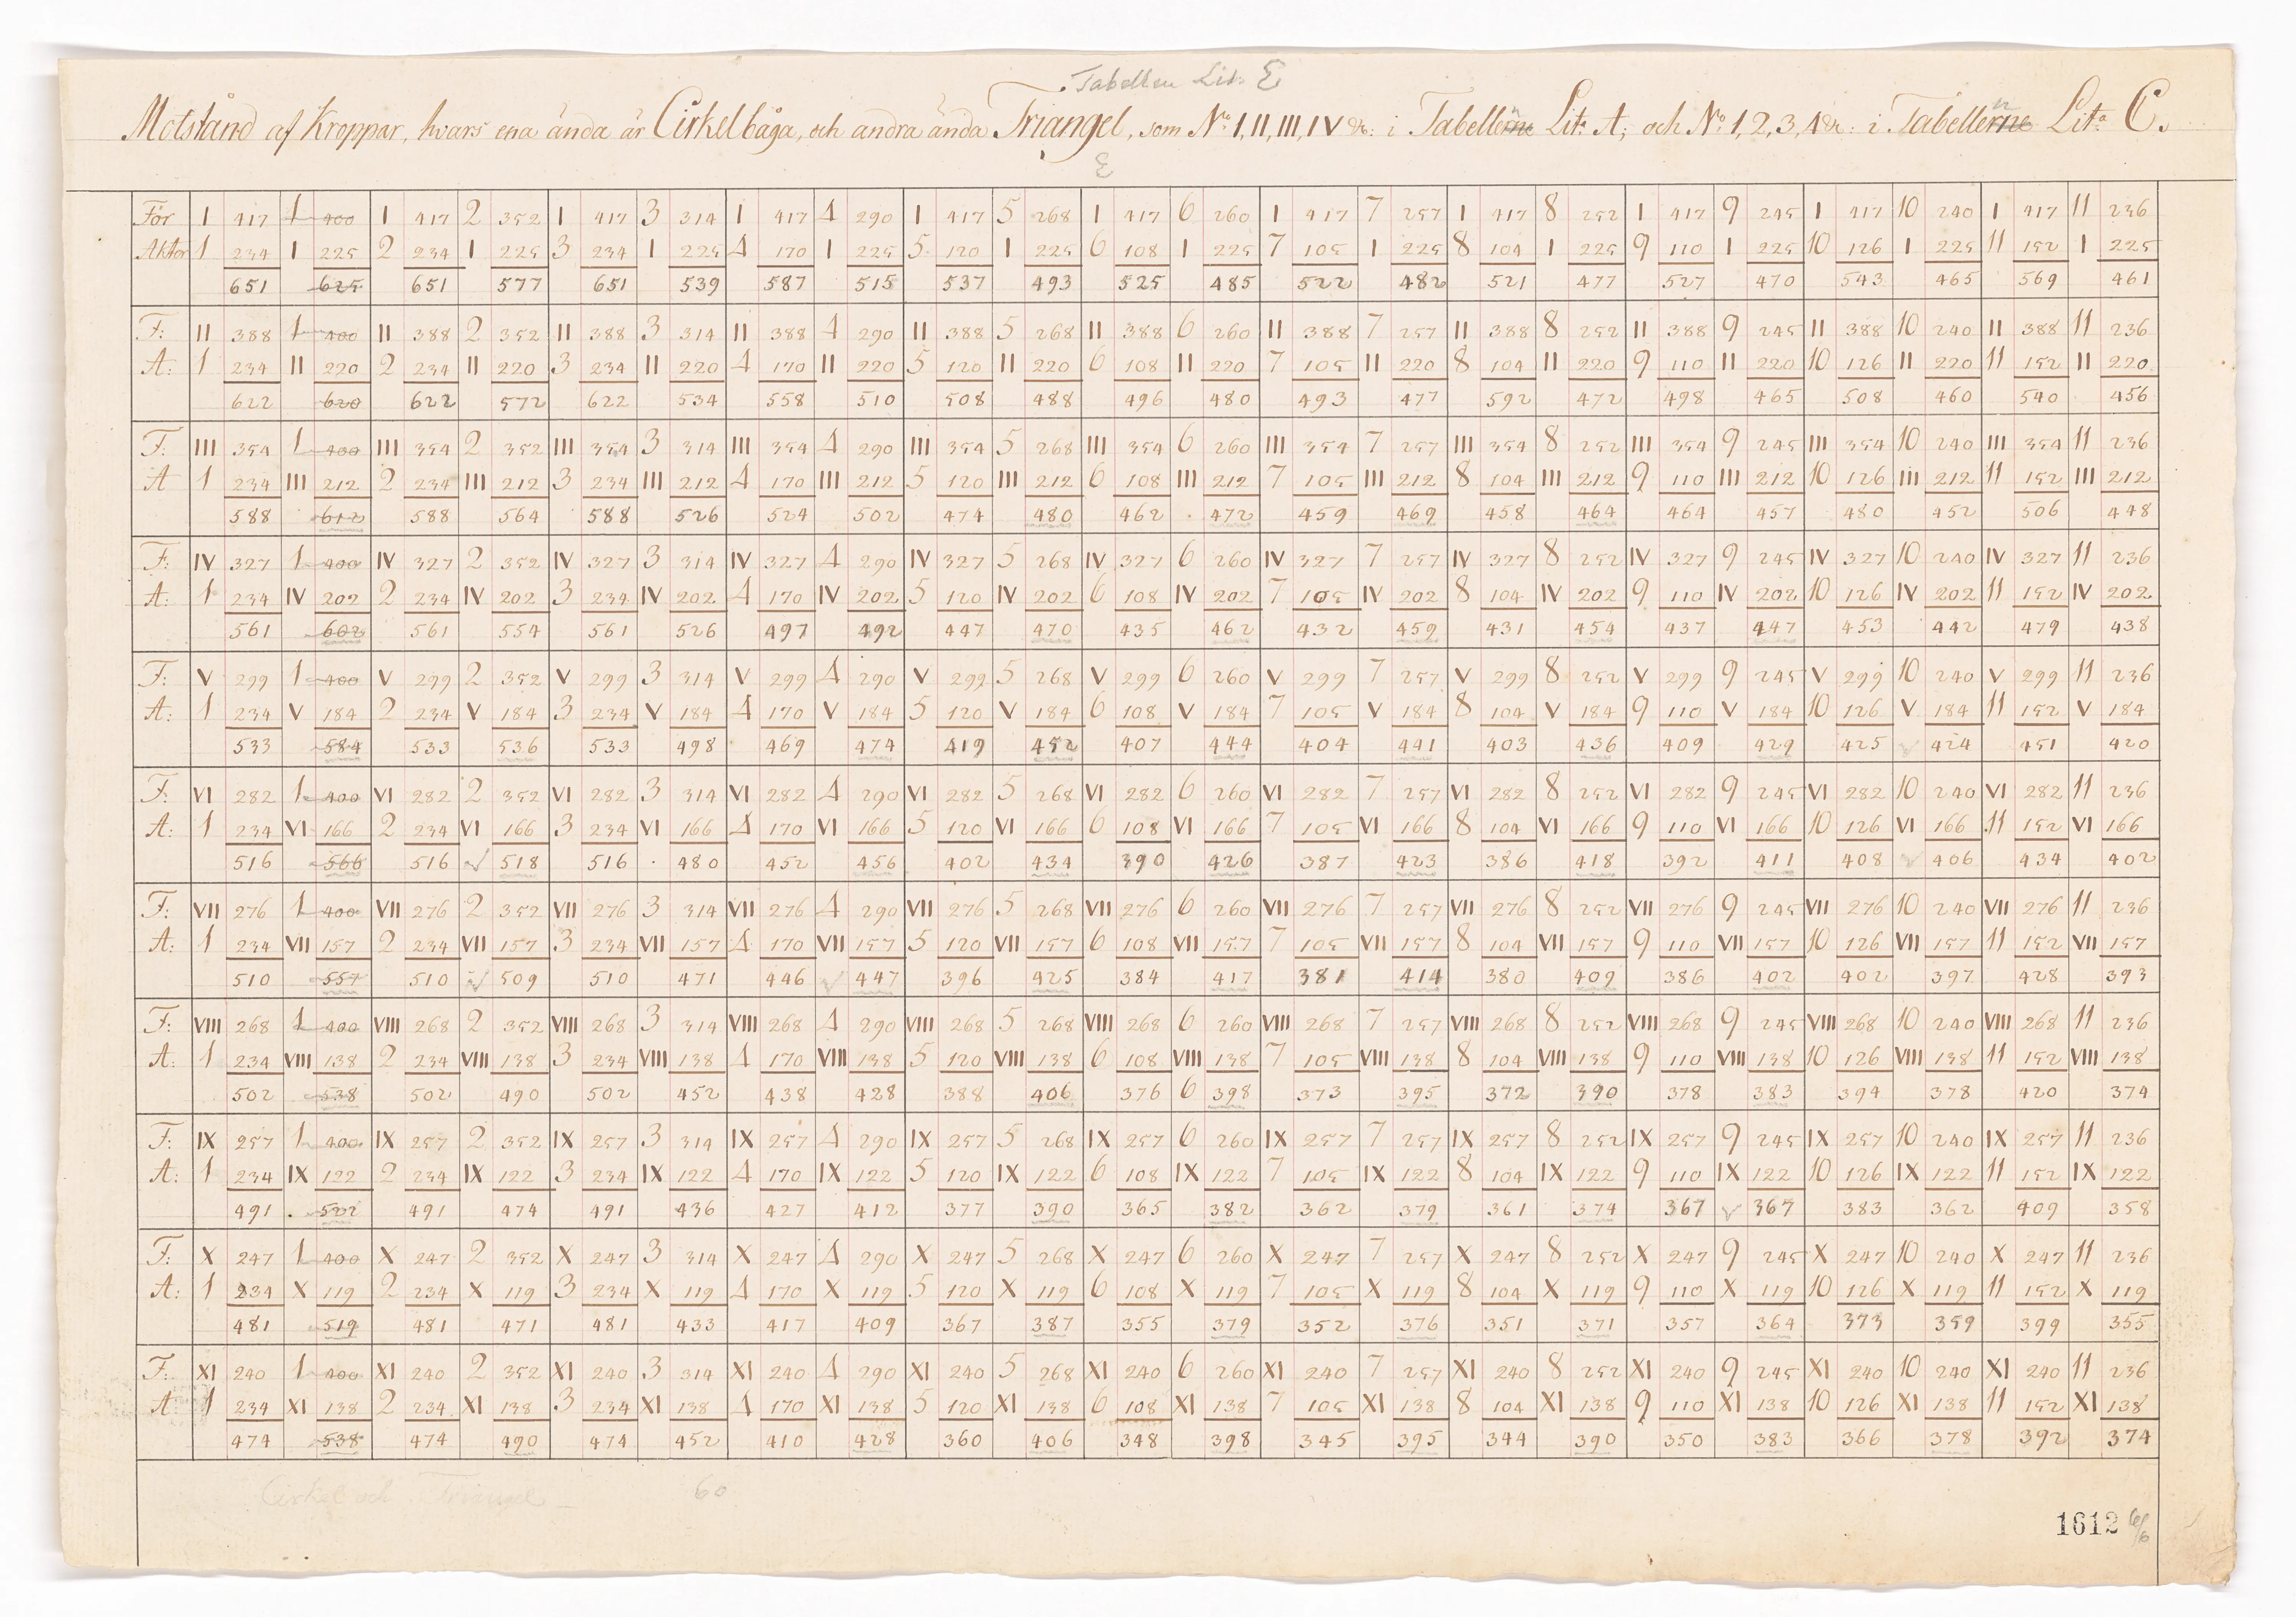 Tabellen Lit: E
Motstånd af Kroppar, hvars ena ända är Cirkelbåga, och andra ända Triangel, som No: I, II, III, IV &c: i Tabellerne Lit: A; och No: 1, 2, 3, 4 &c: i Tabellerne Lit:a C.
E
För I 417 1 400 I 417 2 352 I 417 3 314 I 417 4 290 I 417 5 268 I 417 6 260 I 417 7 257 I 417 8 252 I 417 9 245 I 417 10 240 I 417 11 236
Akter 1 234 I 225 2 234 I 225 3 234 I 225 4 170 I 225 5 120 I 225 6 108 I 225 7 105 I 225 8 104 I 225 9 110 I 225 10 126 I 225 11 152 I 225
651 625 651 577 651 539 587 515 537 493 525 485 522 482 521 477 527 470 543 465 569 461
F: II 388 1 400 II 388 2 352 II 388 3 314 II 388 4 290 II 388 5 268 II 388 6 260 II 388 7 257 II 388 8 252 II 388 9 245 II 388 10 240 II 388 11 236
A: 1 234 II 220 2 234 II 220 3 234 II 220 4 170 II 220 5 120 II 220 6 108 II 220 7 105 II 220 8 104 II 220 9 110 II 220 10 126 II 220 11 152 II 220
622 620 622 572 622 534 558 510 508 488 496 480 493 477 592 472 498 465 508 460 540 456
F: III 354 1 400 III 354 2 352 III 354 3 314 III 354 4 290 III 354 5 268 III 354 6 260 III 354 7 257 III 354 8 252 III 354 9 245 III 354 10 240 III 354 11 236
A 1 234 III 212 2 234 III 212 3 234 III 212 4 170 III 212 5 120 III 212 6 108 III 212 7 105 III 212 8 104 III 212 9 110 III 212 10 126 III 212 11 152 III 212
588 612 588 564 588 526 524 502 474 480 462 472 459 469 458 464 464 457 480 452 506 448
F: IV 327 1 400 IV 327 2 352 IV 327 3 314 IV 327 4 290 IV 327 5 268 IV 327 6 260 IV 327 7 257 IV 327 8 252 IV 327 9 245 IV 327 10 240 IV 327 11 236
A: 1 234 IV 202 2 234 IV 202 3 234 IV 202 4 170 IV 202 5 120 IV 202 6 108 IV 202 7 105 IV 202 8 104 IV 202 9 110 IV 202 10 126 IV 202 11 152 IV 202
561 602 561 554 561 526 497 492 447 470 435 462 432 459 431 454 437 447 453 442 479 438
F: V 299 1 400 V 299 2 352 V 299 3 314 V 299 4 290 V 299 5 268 V 299 6 260 V 299 7 257 V 299 8 252 V 299 9 245 V 299 10 240 V 299 11 236
A: 1 234 V 184 2 234 V 184 3 234 V 184 4 170 V 184 5 120 V 184 6 108 V 184 7 105 V 184 8 104 V 184 9 110 V 184 10 126 V 184 11 152 V 184
533 584 533 536 533 498 469 474 419 452 407 444 404 441 403 436 409 429 425 424 451 420
F: VI 282 1 400 VI 282 2 352 VI 282 3 314 VI 282 4 290 VI 282 5 268 VI 282 6 260 VI 282 7 257 VI 282 8 252 VI 282 9 245 VI 282 10 240 VI 282 11 236
A: 1 234 VI 166 2 234 VI 166 3 234 VI 166 4 170 VI 166 5 120 VI 166 6 108 VI 166 7 105 VI 166 8 104 VI 166 9 110 VI 166 10 126 VI 166 11 152 VI 166
516 566 516 518 516 480 452 456 402 434 390 426 387 423 386 418 392 411 408 406 434 402
F: VII 276 1 400 VII 276 2 352 VII 276 3 314 VII 276 4 290 VII 276 5 268 VII 276 6 260 VII 276 7 257 VII 276 8 252 VII 276 9 245 VII 276 10 240 VII 276 11 236
A: 1 234 VII 157 2 234 VII 157 3 234 VII 157 4 170 VII 157 5 120 VII 157 6 108 VII 157 7 105 VII 157 8 104 VII 157 9 110 VII 157 10 126 VII 157 11 152 VII 157
510 557 510 509 510 471 446 447 396 425 384 417 381 414 380 409 386 402 402 397 428 393
F: VIII 268 1 400 VIII 268 2 352 VIII 268 3 314 VIII 268 4 290 VIII 268 5 268 VIII 268 6 260 VIII 268 7 257 VIII 268 8 252 VIII 268 9 245 VIII 268 10 240 VIII 268 11 236
A: 1 234 VIII 138 2 234 VIII 138 3 234 VIII 138 4 170 VIII 138 5 120 VIII 138 6 108 VIII 138 7 105 VIII 138 8 104 VIII 138 9 110 VIII 138 10 126 VIII 138 11 152 VIII 138
502 538 502 490 502 452 438 428 388 406 376 6 398 373 395 372 390 378 383 394 378 420 374
F: IX 257 1 400 IX 257 2 352 IX 257 3 314 IX 257 4 290 IX 257 5 268 IX 257 6 260 IX 257 7 257 IX 257 8 252 IX 257 9 245 IX 257 10 240 IX 257 11 236
A: 1 234 IX 122 2 234 IX 122 3 234 IX 122 4 170 IX 122 5 120 IX 122 6 108 IX 122 7 105 IX 122 8 104 IX 122 9 110 IX 122 10 126 IX 122 11 152 IX 122
491 522 491 474 491 436 427 412 377 390 365 382 362 379 361 374 367 367 383 362 409 358
F: X 247 1 400 X 247 2 352 X 247 3 314 X 247 4 290 X 247 5 268 X 247 6 260 X 247 7 257 X 247 8 252 X 247 9 245 X 247 10 240 X 247 11 236
A: 1 234 X 119 2 234 X 119 3 234 X 119 4 170 X 119 5 120 X 119 6 108 X 119 7 105 X 119 8 104 X 119 9 110 X 119 10 126 X 119 11 152 X 119
481 519 481 471 481 433 417 409 367 387 355 379 352 376 351 371 357 364 373 359 399 355
F: XI 240 1 400 XI 240 2 352 XI 240 3 314 XI 240 4 290 XI 240 5 268 XI 240 6 260 XI 240 7 257 XI 240 8 252 XI 240 9 245 XI 240 10 240 XI 240 11 236
A: 1 234 XI 138 2 234 XI 138 3 234 XI 138 4 170 XI 138 5 120 XI 138 6 108 XI 138 7 105 XI 138 8 104 XI 138 9 110 XI 138 10 126 XI 138 11 152 XI 138
474 538 474 490 474 452 410 428 360 406 348 398 345 395 344 390 350 383 366 378 392 374
Cirkel och Triangel – 60
1612 6/6